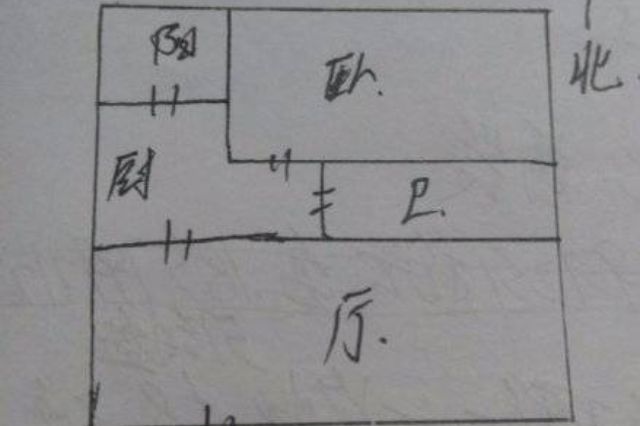 阳
卧.
北
厨
卫.
厅.